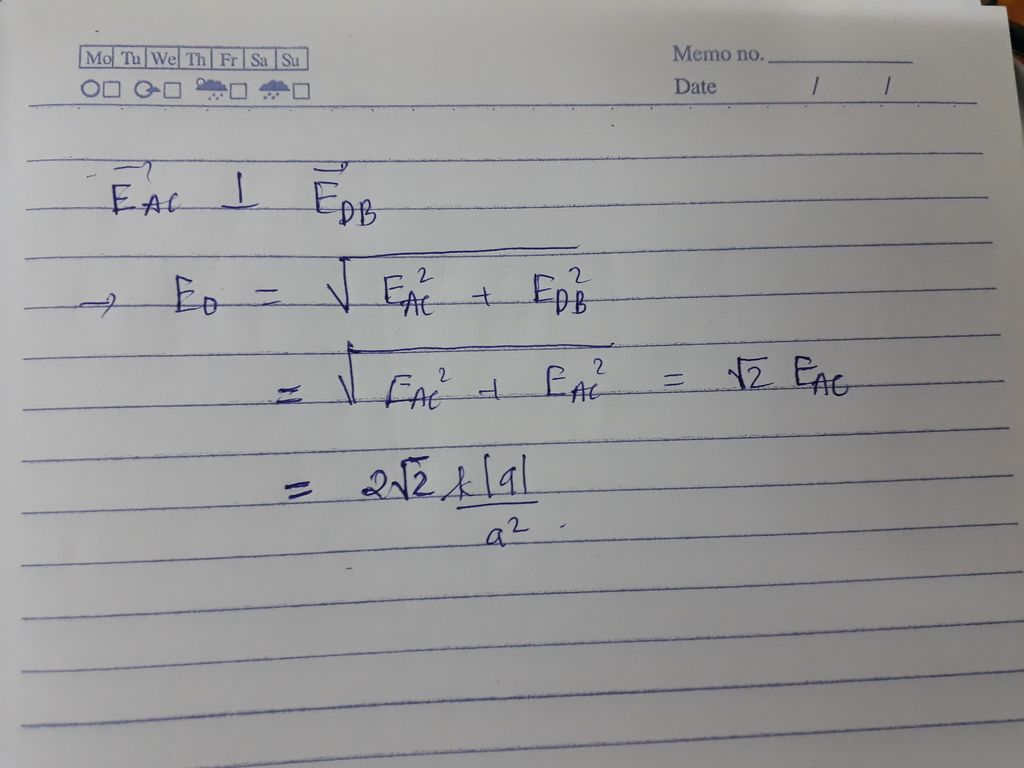 Mo Tu We Th Fr Sa Su
Memo no.
Date / /
→E_AC ⊥ →E_DB
→ E_O = √(E_AC² + E_DB²)
= √(E_AC² + E_AC²) = √2 E_AC
= 2√2 k|q|/a².